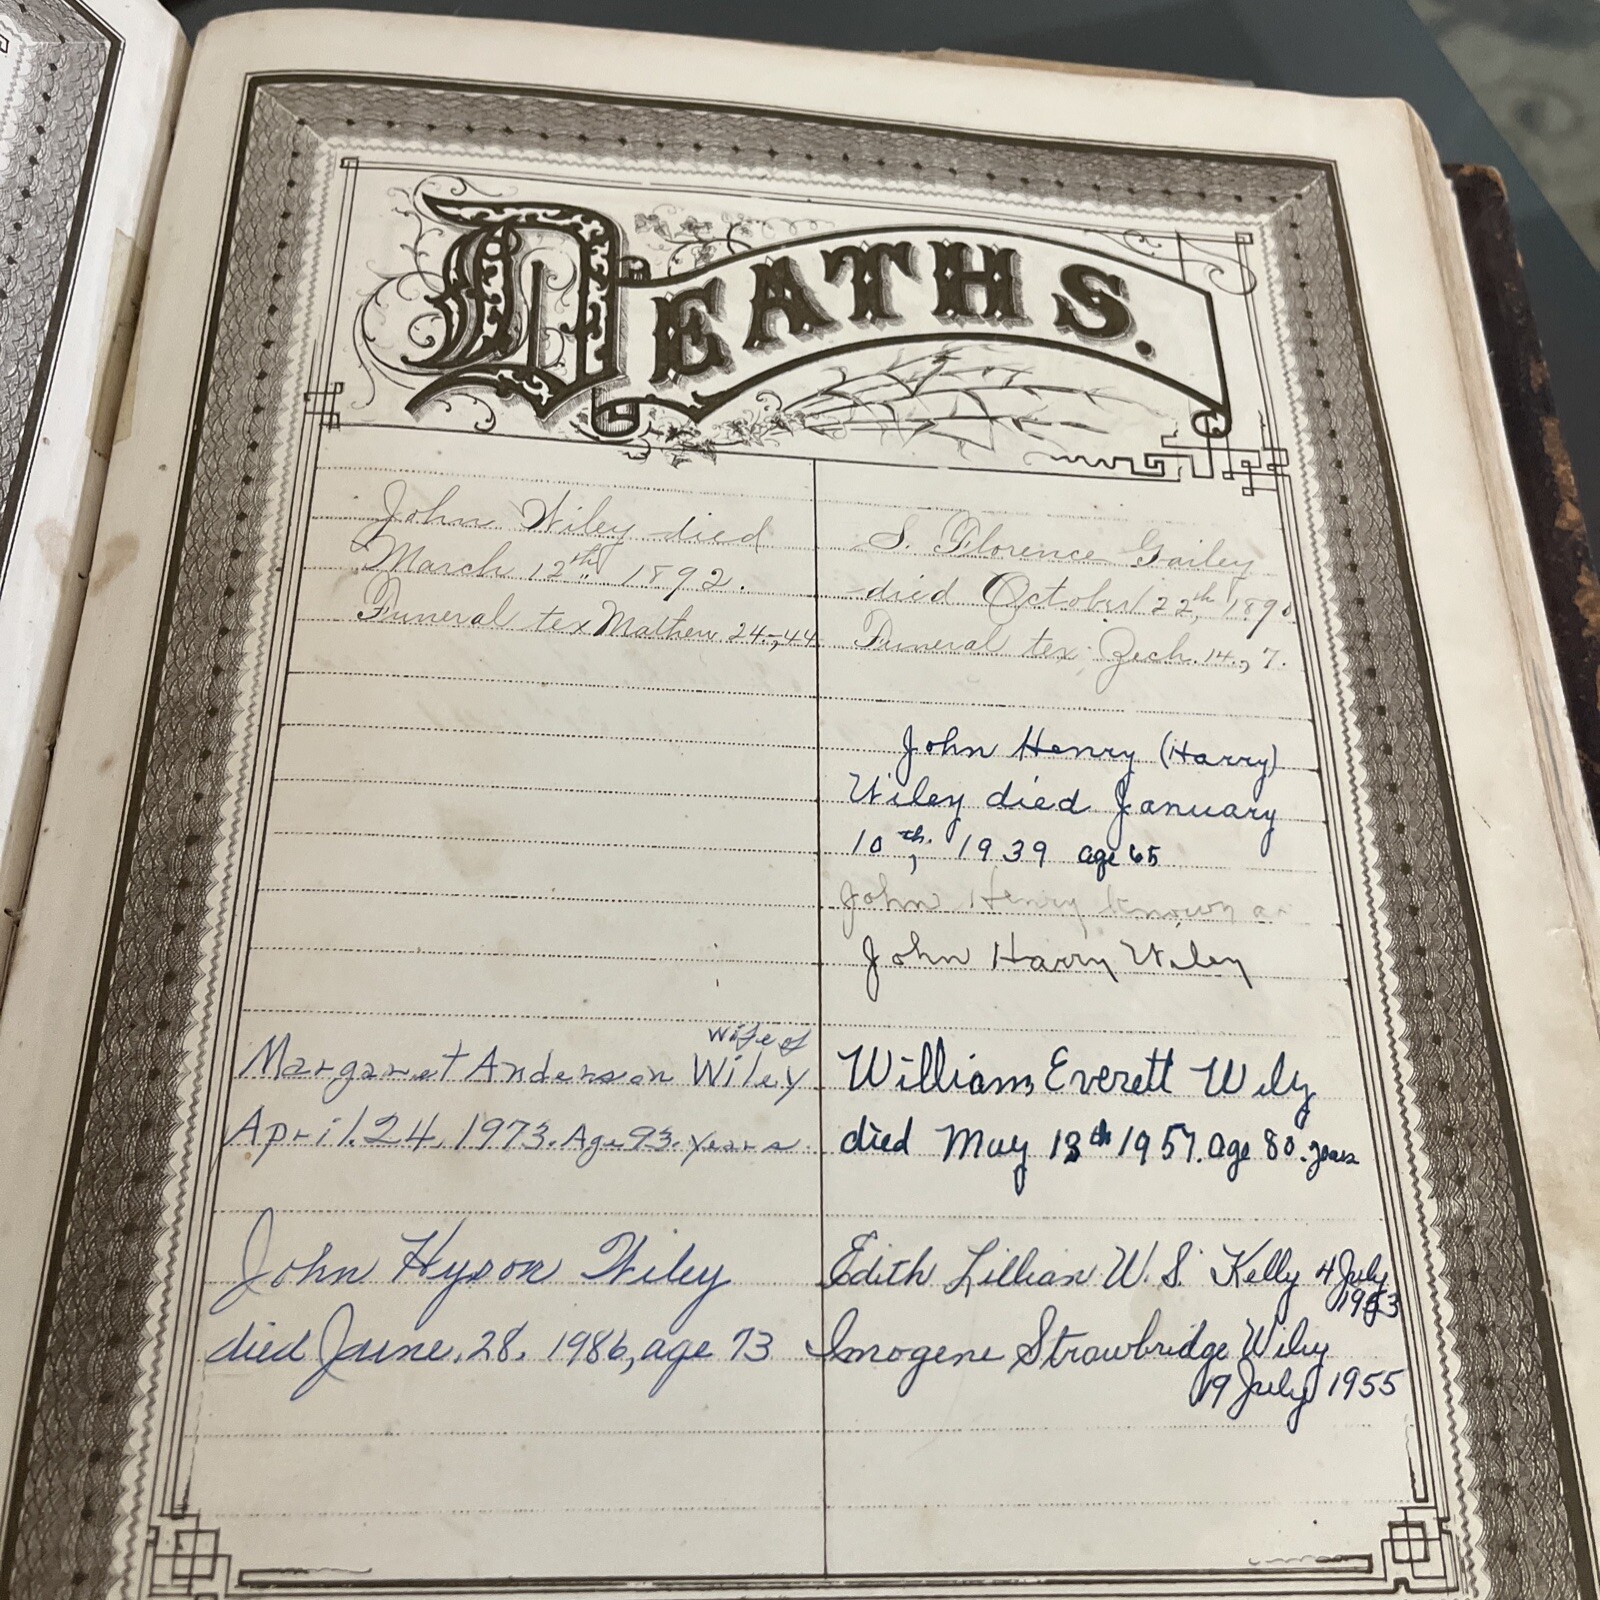 DEATHS.
John Wiley died
March 12th 1892.
Funeral tex Mathew 24-,44
S. Florence Gailey
died October 22th, 1890
Funeral tex. Zech. 14., 7.
John Henry (Harry)
Wiley died January
10th, 1939 age 65
John Henry known as
John Harry Wiley
wife of
Margaret Anderson Wiley
April.24, 1973. Age 93. years
William Everett Wily
died May 13th 1957. age 80. years
John Hyson Wiley
died June, 28, 1986, age 73
Edith Lillian W. S. Kelly 4 July
Imogene Strawbridge Wiley
19 July 1955